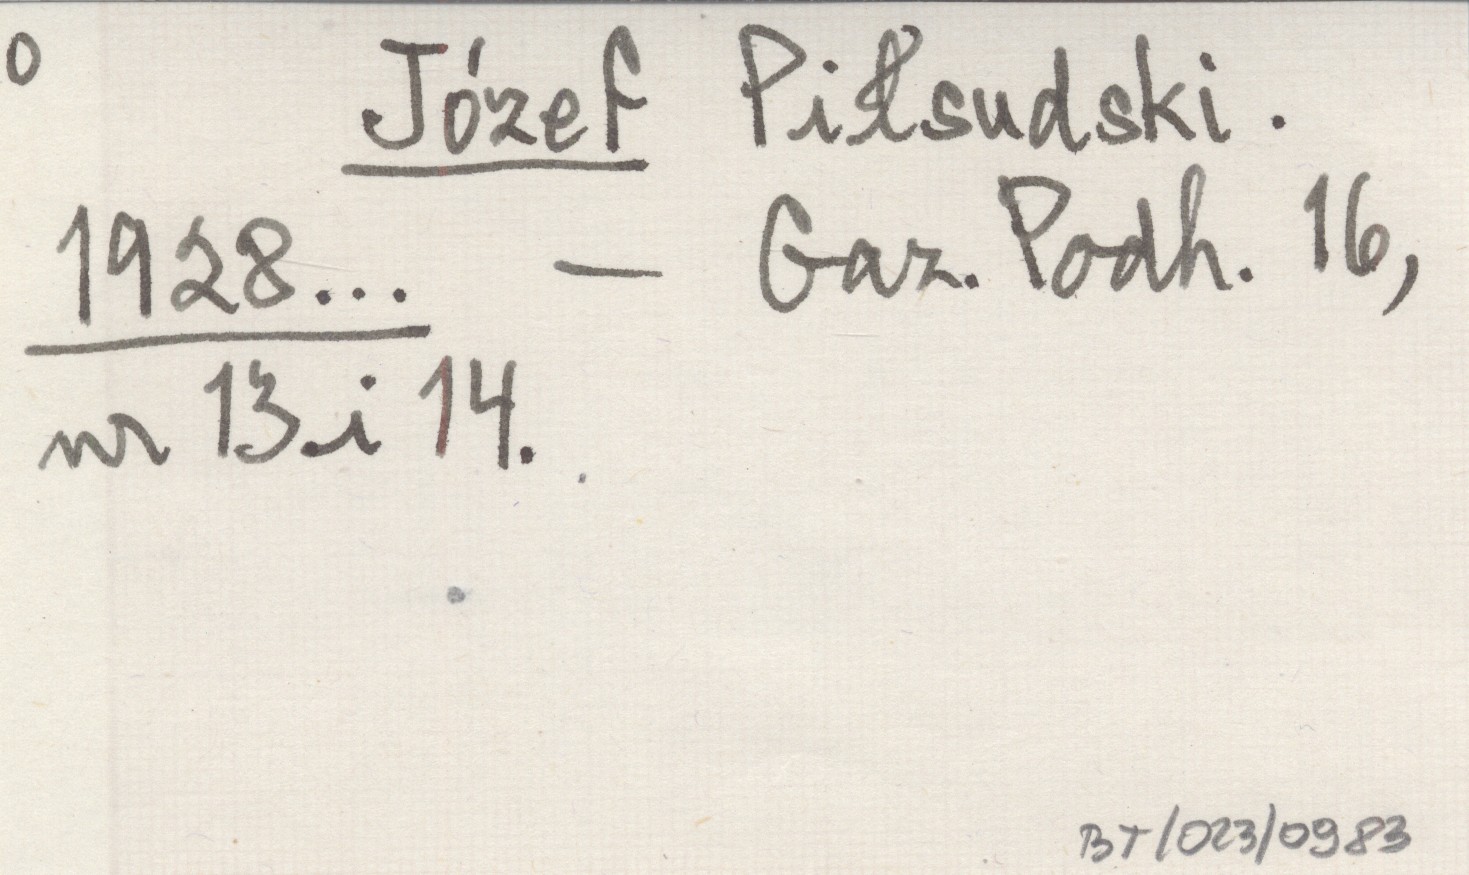 o
Józef Piłsudski.
1928... — Gaz. Podh. 16,
nr 13 i 14.
BT/023/0983